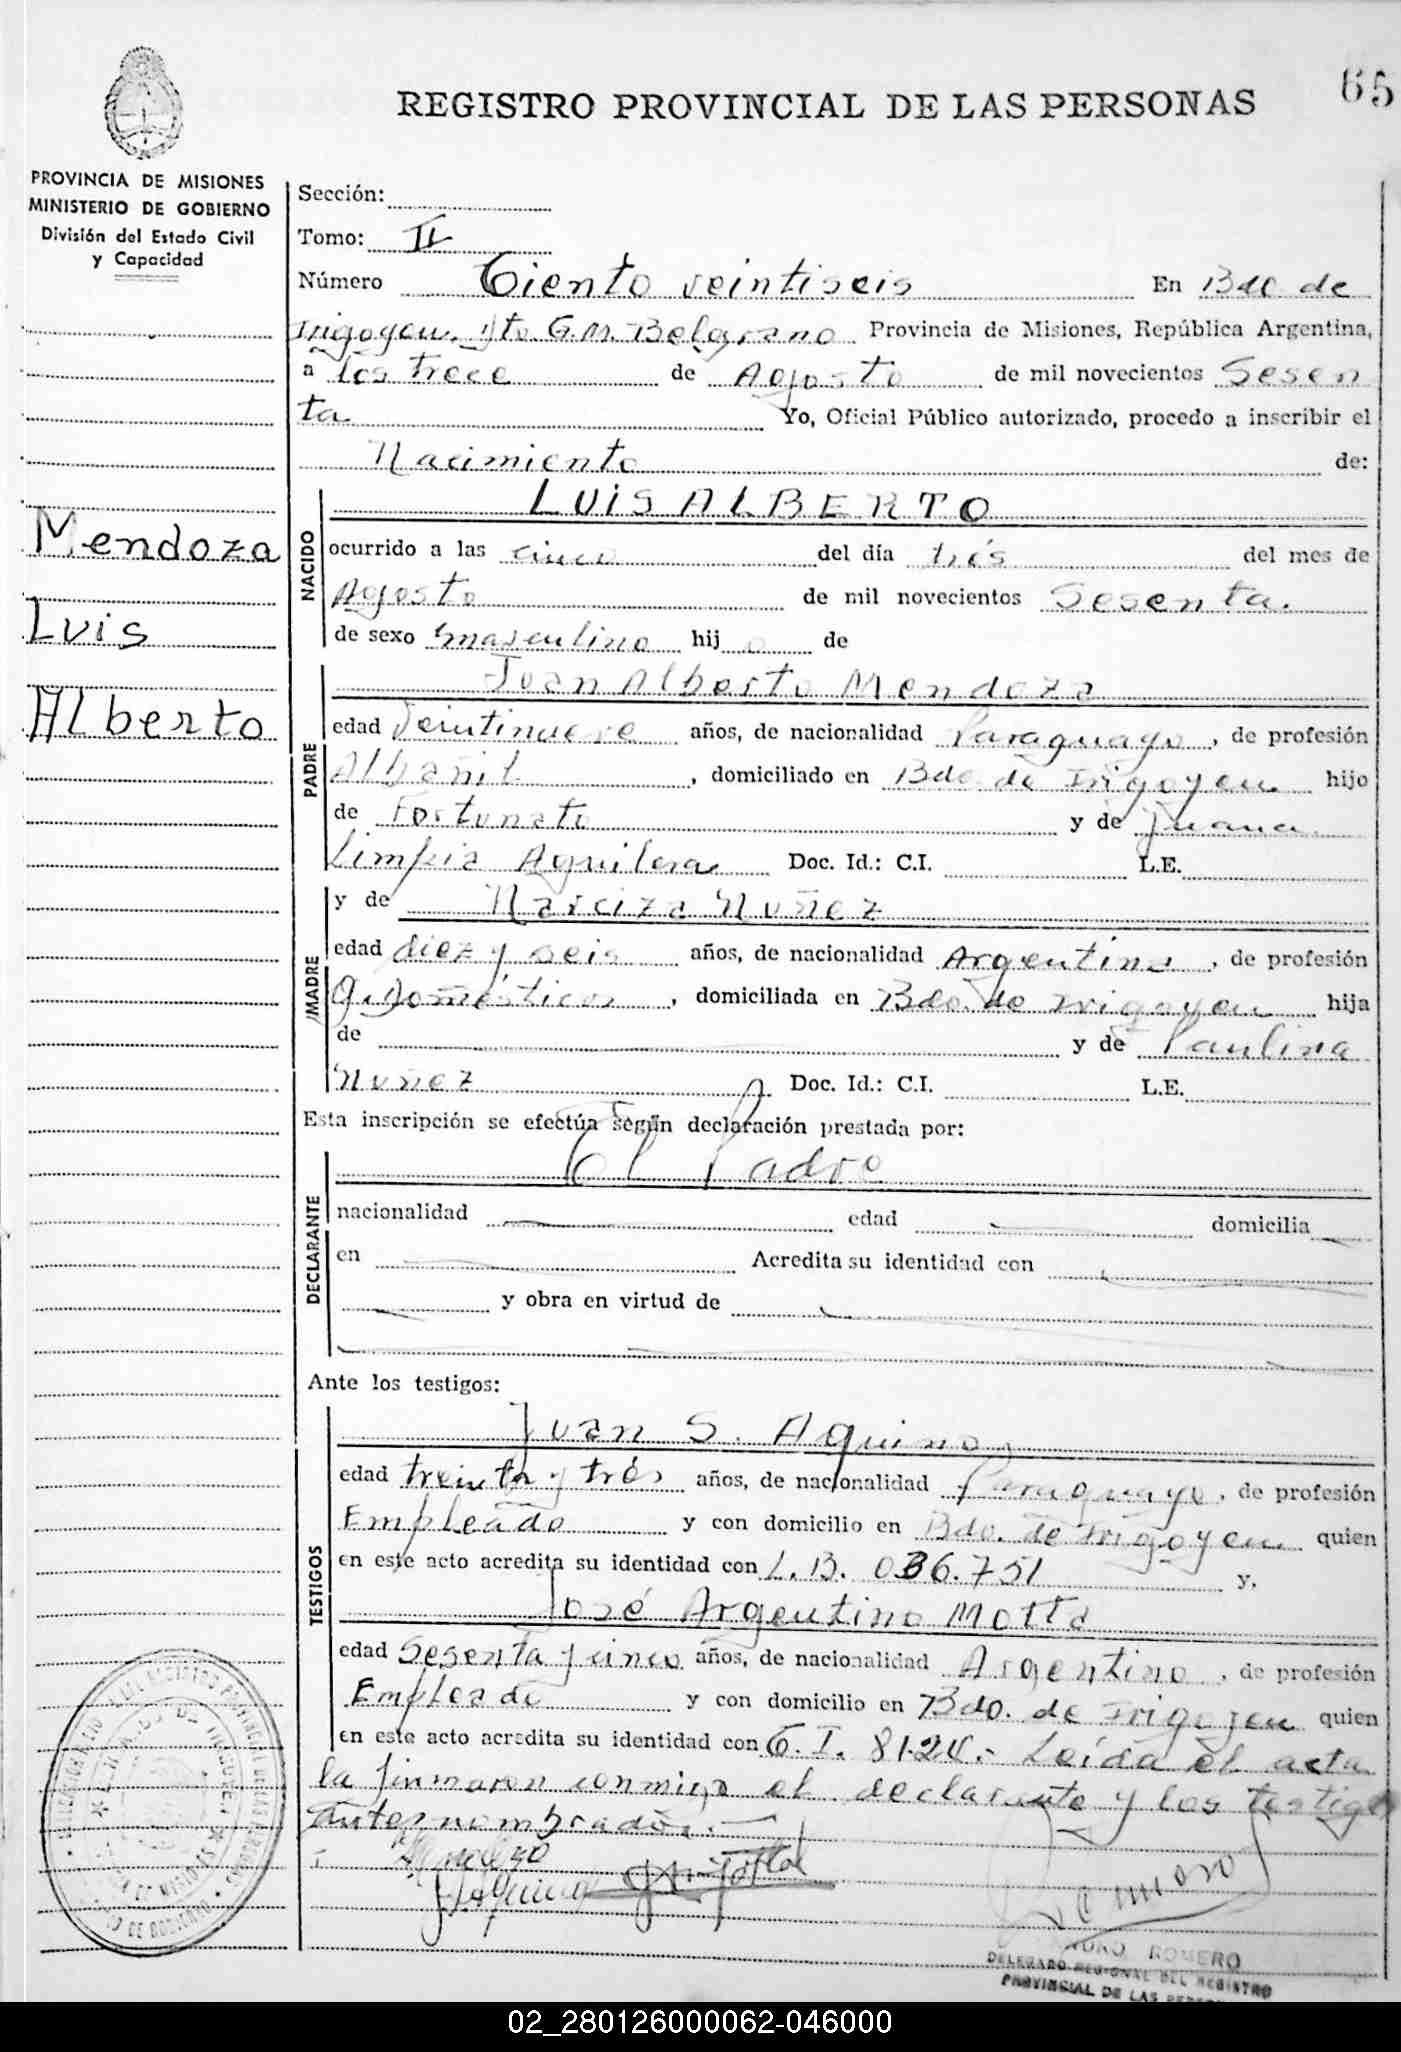 65
REGISTRO PROVINCIAL DE LAS PERSONAS
PROVINCIA DE MISIONES
MINISTERIO DE GOBIERNO
División del Estado Civil
y Capacidad
Mendoza
Luis
Alberto
Sección:
Tomo: II
Número Ciento veintiseis En Bdo de
Irigoyen, Dto. G.M. Belgrano Provincia de Misiones, República Argentina,
a los trece de Agosto de mil novecientos Sesen
ta Yo, Oficial Público autorizado, procedo a inscribir el
Nacimiento de:
NACIDO
LUIS ALBERTO
ocurrido a las cinco del día trés del mes de
Agosto de mil novecientos Sesenta.
de sexo masculino hij o de
PADRE
Juan Alberto Mendoza
edad Veintinueve años, de nacionalidad Paraguayo, de profesión
Albañil, domiciliado en Bdo. de Irigoyen hijo
de Fortunato y de Juana
Limpia Aguilera Doc. Id.: C.I. L.E.
MADRE
y de Narciza Nuñez
edad diez y seis años, de nacionalidad Argentina, de profesión
Q. Domésticos, domiciliada en Bdo. de Irigoyen hija
de y de Paulina
Nuñez Doc. Id.: C.I. L.E.
Esta inscripción se efectúa según declaración prestada por:
DECLARANTE
El Padre
nacionalidad edad domicilia
en Acredita su identidad con
y obra en virtud de
Ante los testigos:
TESTIGOS
Juan S. Aquino
edad treinta y trés años, de nacionalidad Paraguayo, de profesión
Empleado y con domicilio en Bdo. de Irigoyen quien
en este acto acredita su identidad con L.B. 036.751 y.
José Argentino Motta
edad Sesenta y cinco años, de nacionalidad Argentino, de profesión
Empleado y con domicilio en Bdo. de Irigoyen quien
en este acto acredita su identidad con C.I. Leída el acta
la firmaron conmigo el declarante y los testigos
antes nombrados.
Mendoza
JSAquino
Romero
ROMERO
DELEGADO REGIONAL DEL REGISTRO
PROVINCIAL DE LAS
02_280126000062-046000